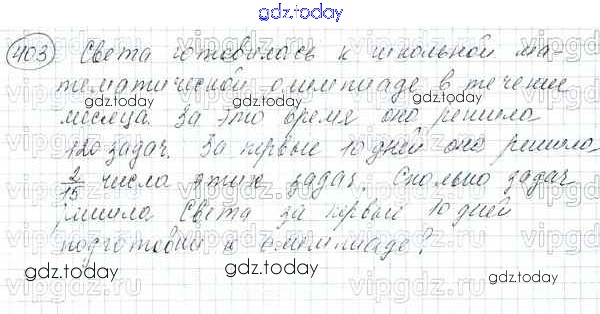 gdz.today
403 Света готовилась к школьной ма-
тематической олимпиаде в течение
месяца. За это время она решила
120 задач. За первые 10 дней она решила
2/15 числа этих задач. Сколько задач
решила Света за первые 10 дней
подготовки к олимпиаде?
gdz.today
gdz.today
gdz.today
gdz.today
gdz.today
gdz.today
gdz.today
gdz.today
vipgdz.ru
vipgdz.ru
vipgdz.ru